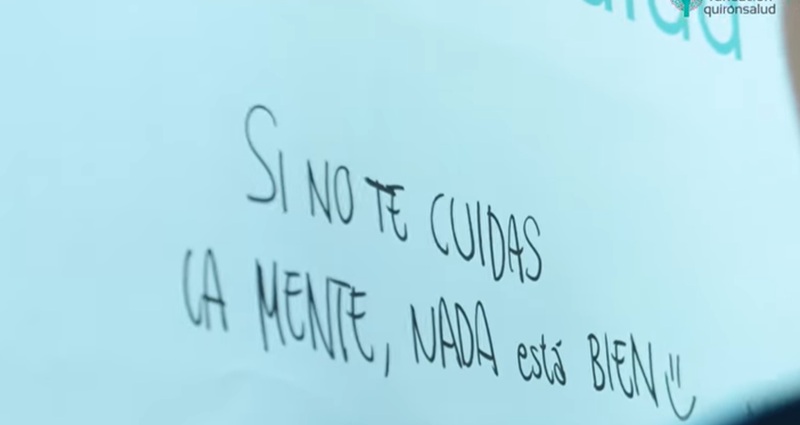 quirónsalud
SI NO TE CUIDAS
LA MENTE, NADA está BIEN